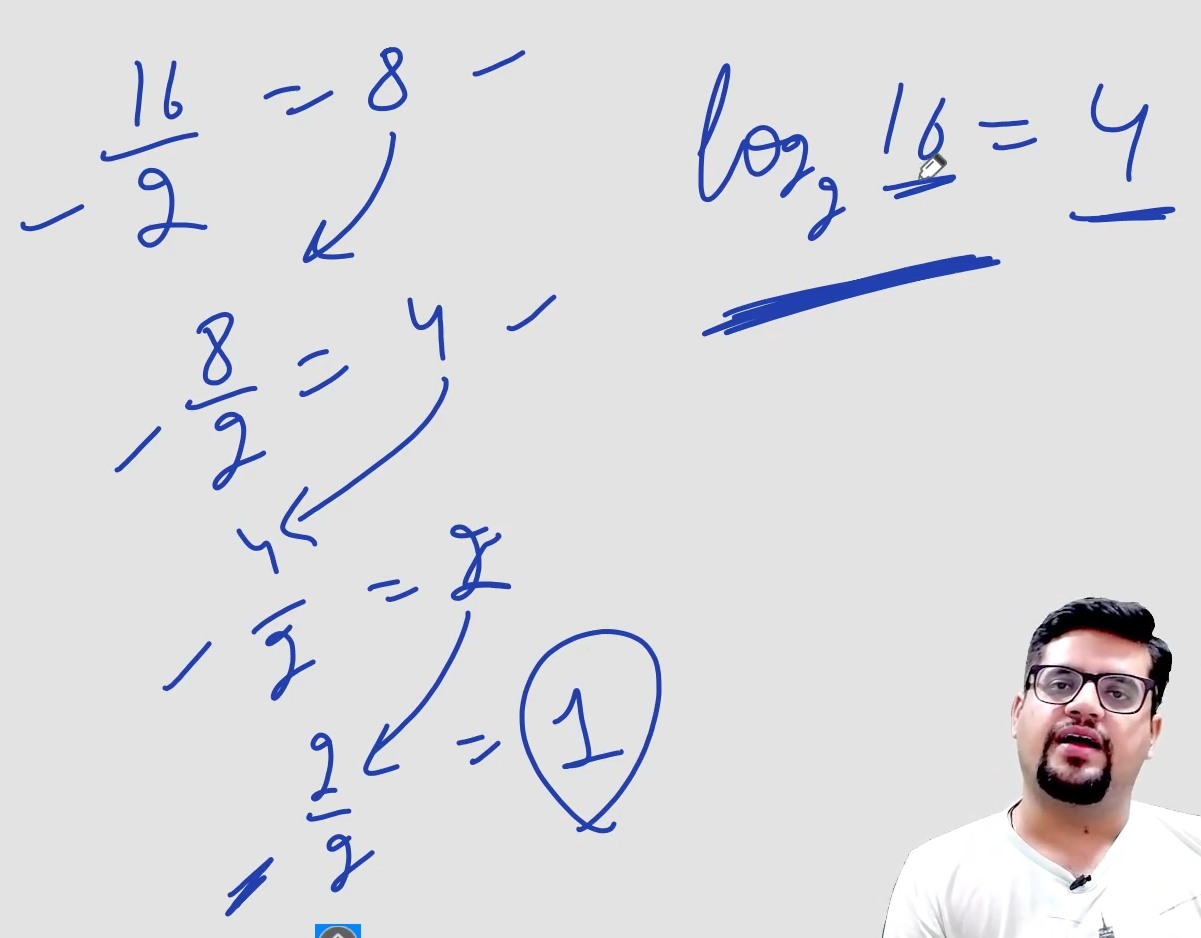 16/2 = 8
8/2 = 4
4/2 = 2
2/2 = 1
log₂ 16 = 4